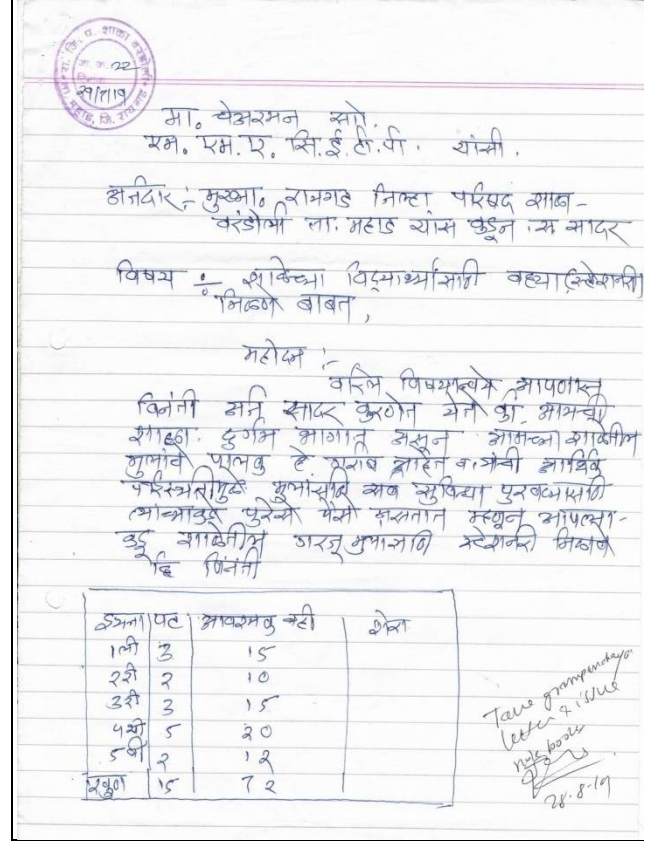 रा. जि. प. शाळा वरंडोली
जा. क्र. 22
दिनांक
29/7/19
महाड, जि. रायगड
मा. चेअरमन सो.
एम. एम. ए. सि. ई. टी. पी. यांसी.
अर्जदार :- मुख्या. रायगड जिल्हा परिषद शाळा-
वरंडोली ता. महाड यांस कडून स सादर
विषय ÷ शाळेच्या विद्यार्थ्यांसाठी वह्या (स्टेशनरी)
मिळणे बाबत,
महोदय :-
वरिल विषयान्वये आपणास
विनंती अर्ज सादर करणेत येतो की, आमची
शाळा. दुर्गम भागात असून आमच्या शाळेतील
मुलांचे पालक हे गराब आहेत व त्यांची आर्थिक
परिस्थतीमुळे मुलांसाठि सव सुविधा पुरवण्यासाठी
त्यांच्याकडे पुरेसे पैसे नसतात म्हणून आपल्या-
कडू शाळेतील गरजू मुलासाठि स्टेशनरी मिळावे
हि विनंती
इयत्ता पट आवश्यक वही शेरा
1ली 3 15
2री 2 10
3री 3 15
4थी 5 20
5वी 2 12
एकूण 15 72
Take grampanchayat
letter & issue
note books
28-8-19